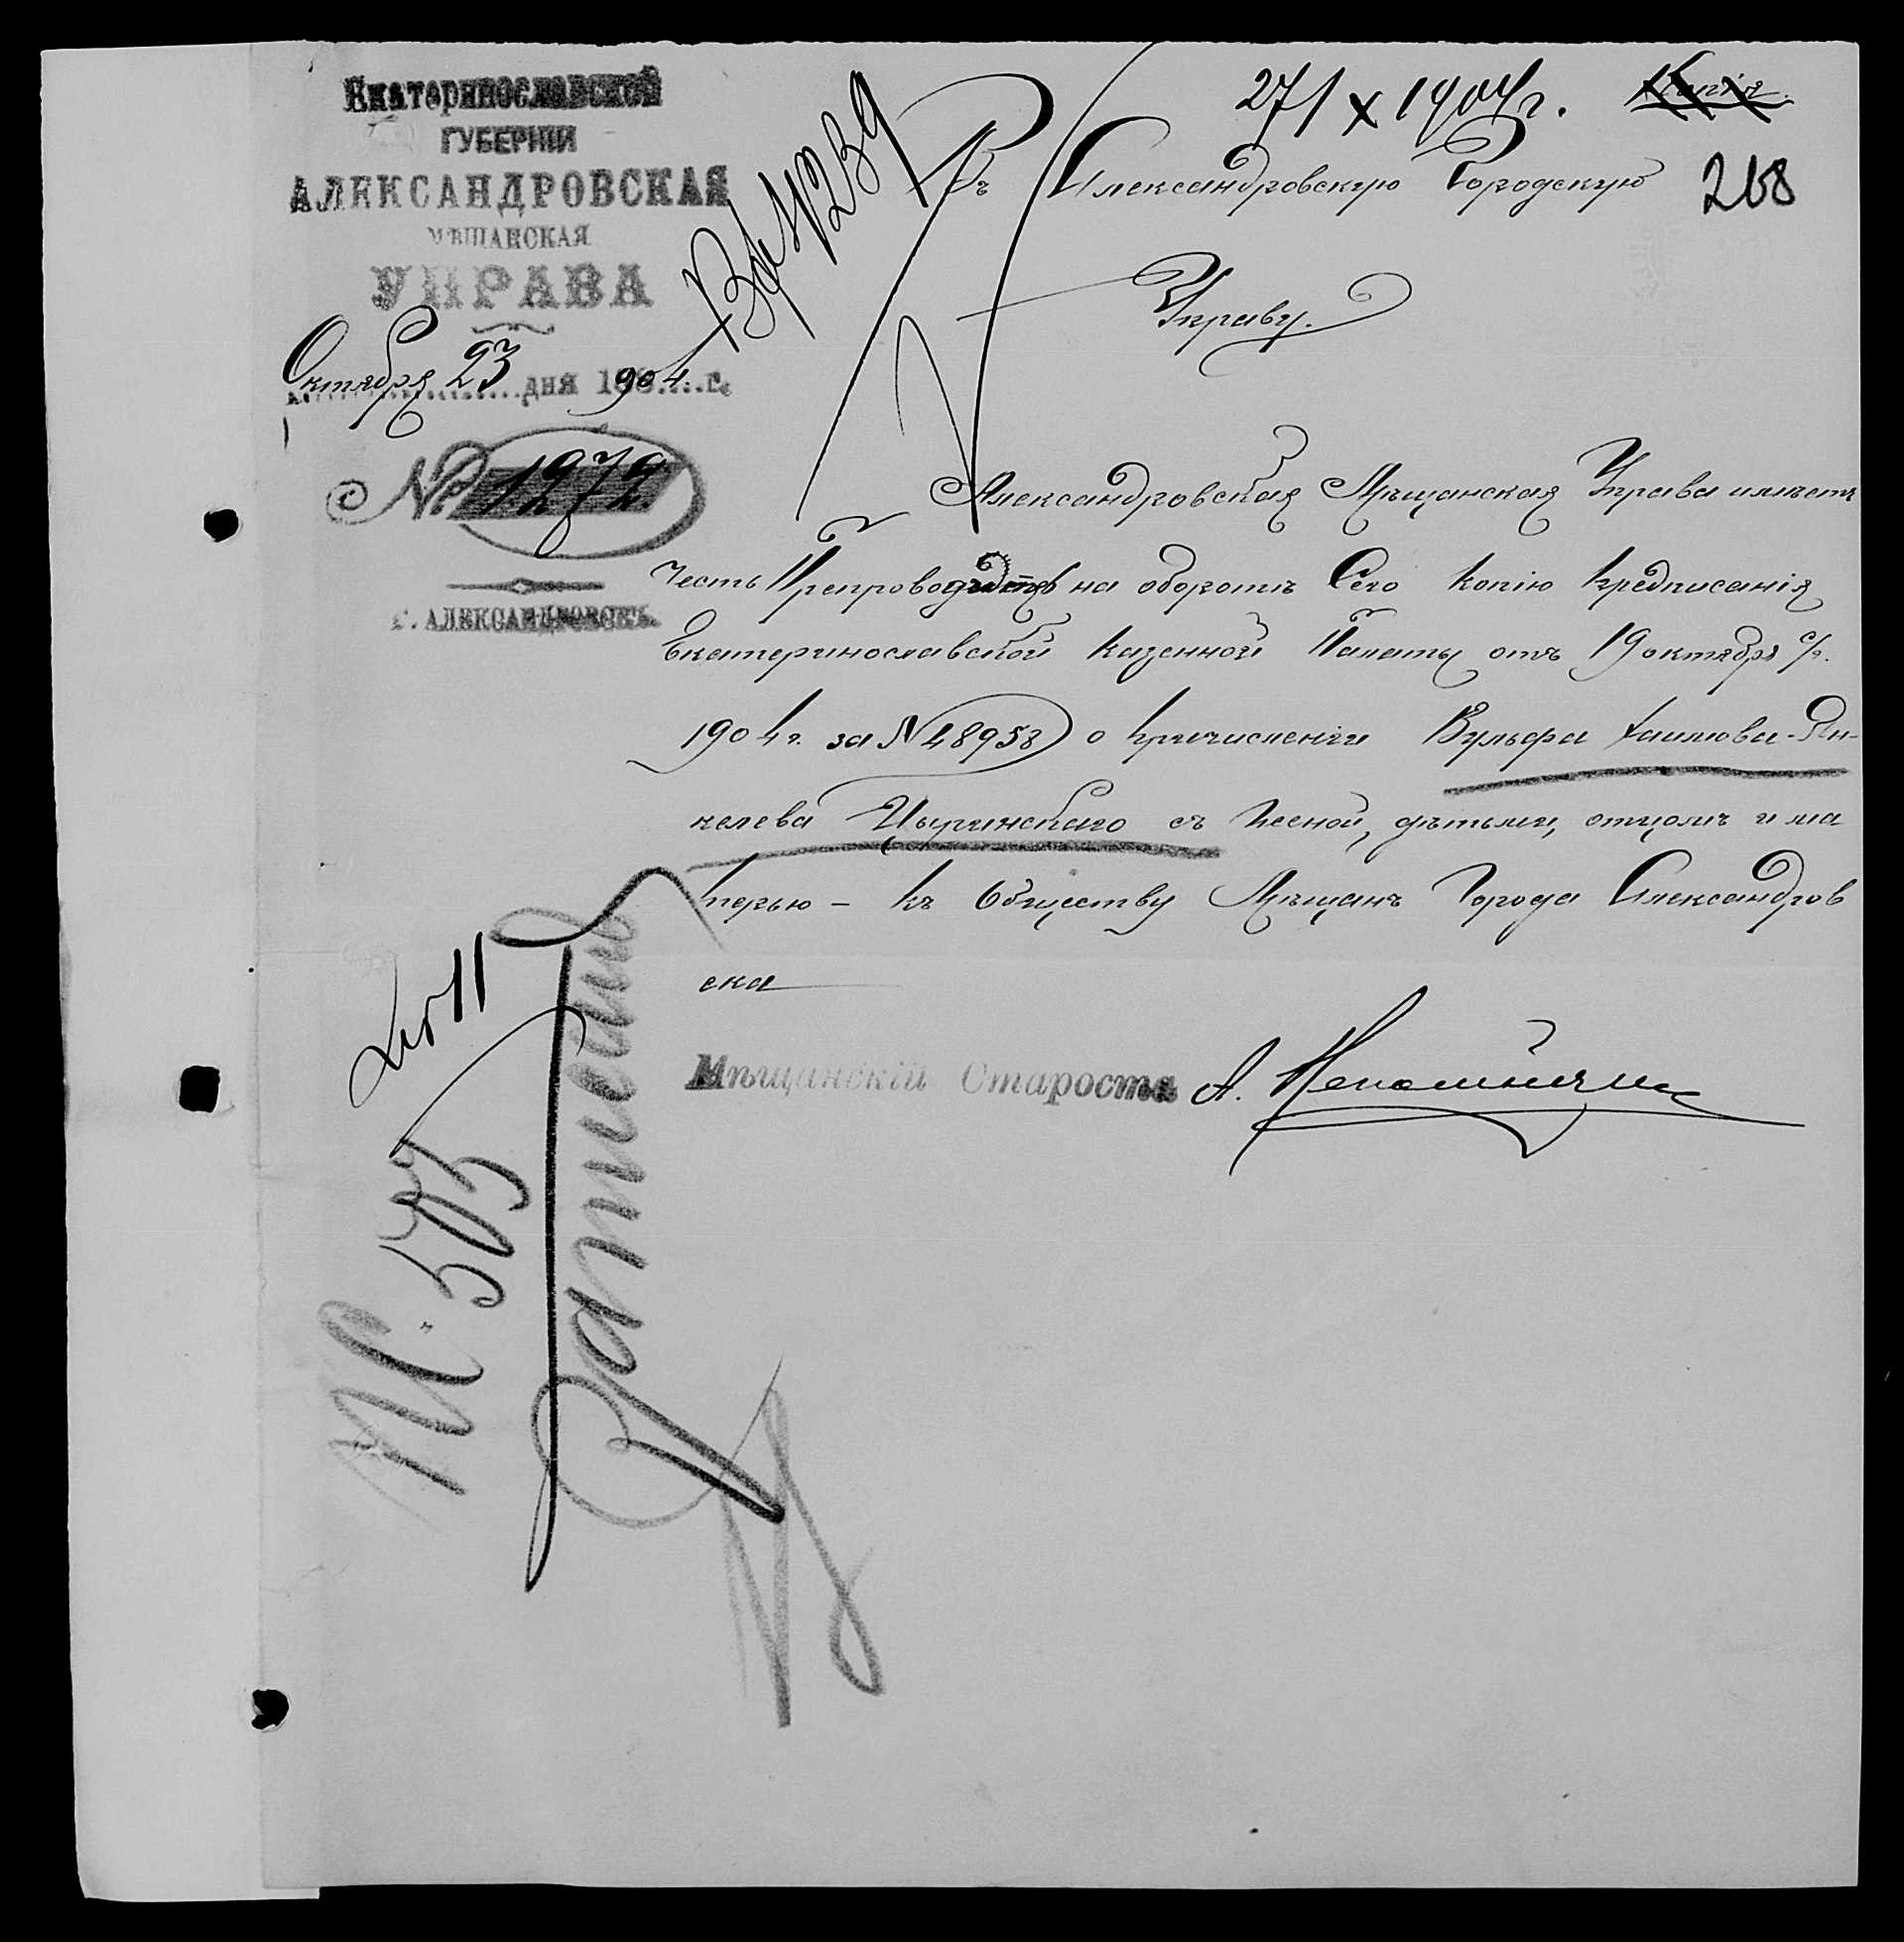 Екатеринославской
ГУБЕРНІИ
АЛЕКСАНДРОВСКАЯ
МѢЩАНСКАЯ
УПРАВА
Октября 23 дня 1904 г.
№ 1272
г. АЛЕКСАНДРОВСКЪ.
27/X 1904 г.
Копія.
268
Въ Александровскую Городскую
Управу.
Александровская Мѣщанская Управа имѣетъ
честь Препроводить на оборотѣ Сего копію предписанія
Екатеринославской Казенной Палаты отъ 19 октября с/г.
1904 г. за № 48958 о причисленіи Вульфа Хаимова-Ян-
келева Цыринскаго съ женой, дѣтьми, отцомъ и ма
терью – къ Обществу Мѣщанъ Города Александров
ска
Мѣщанскій Староста А.